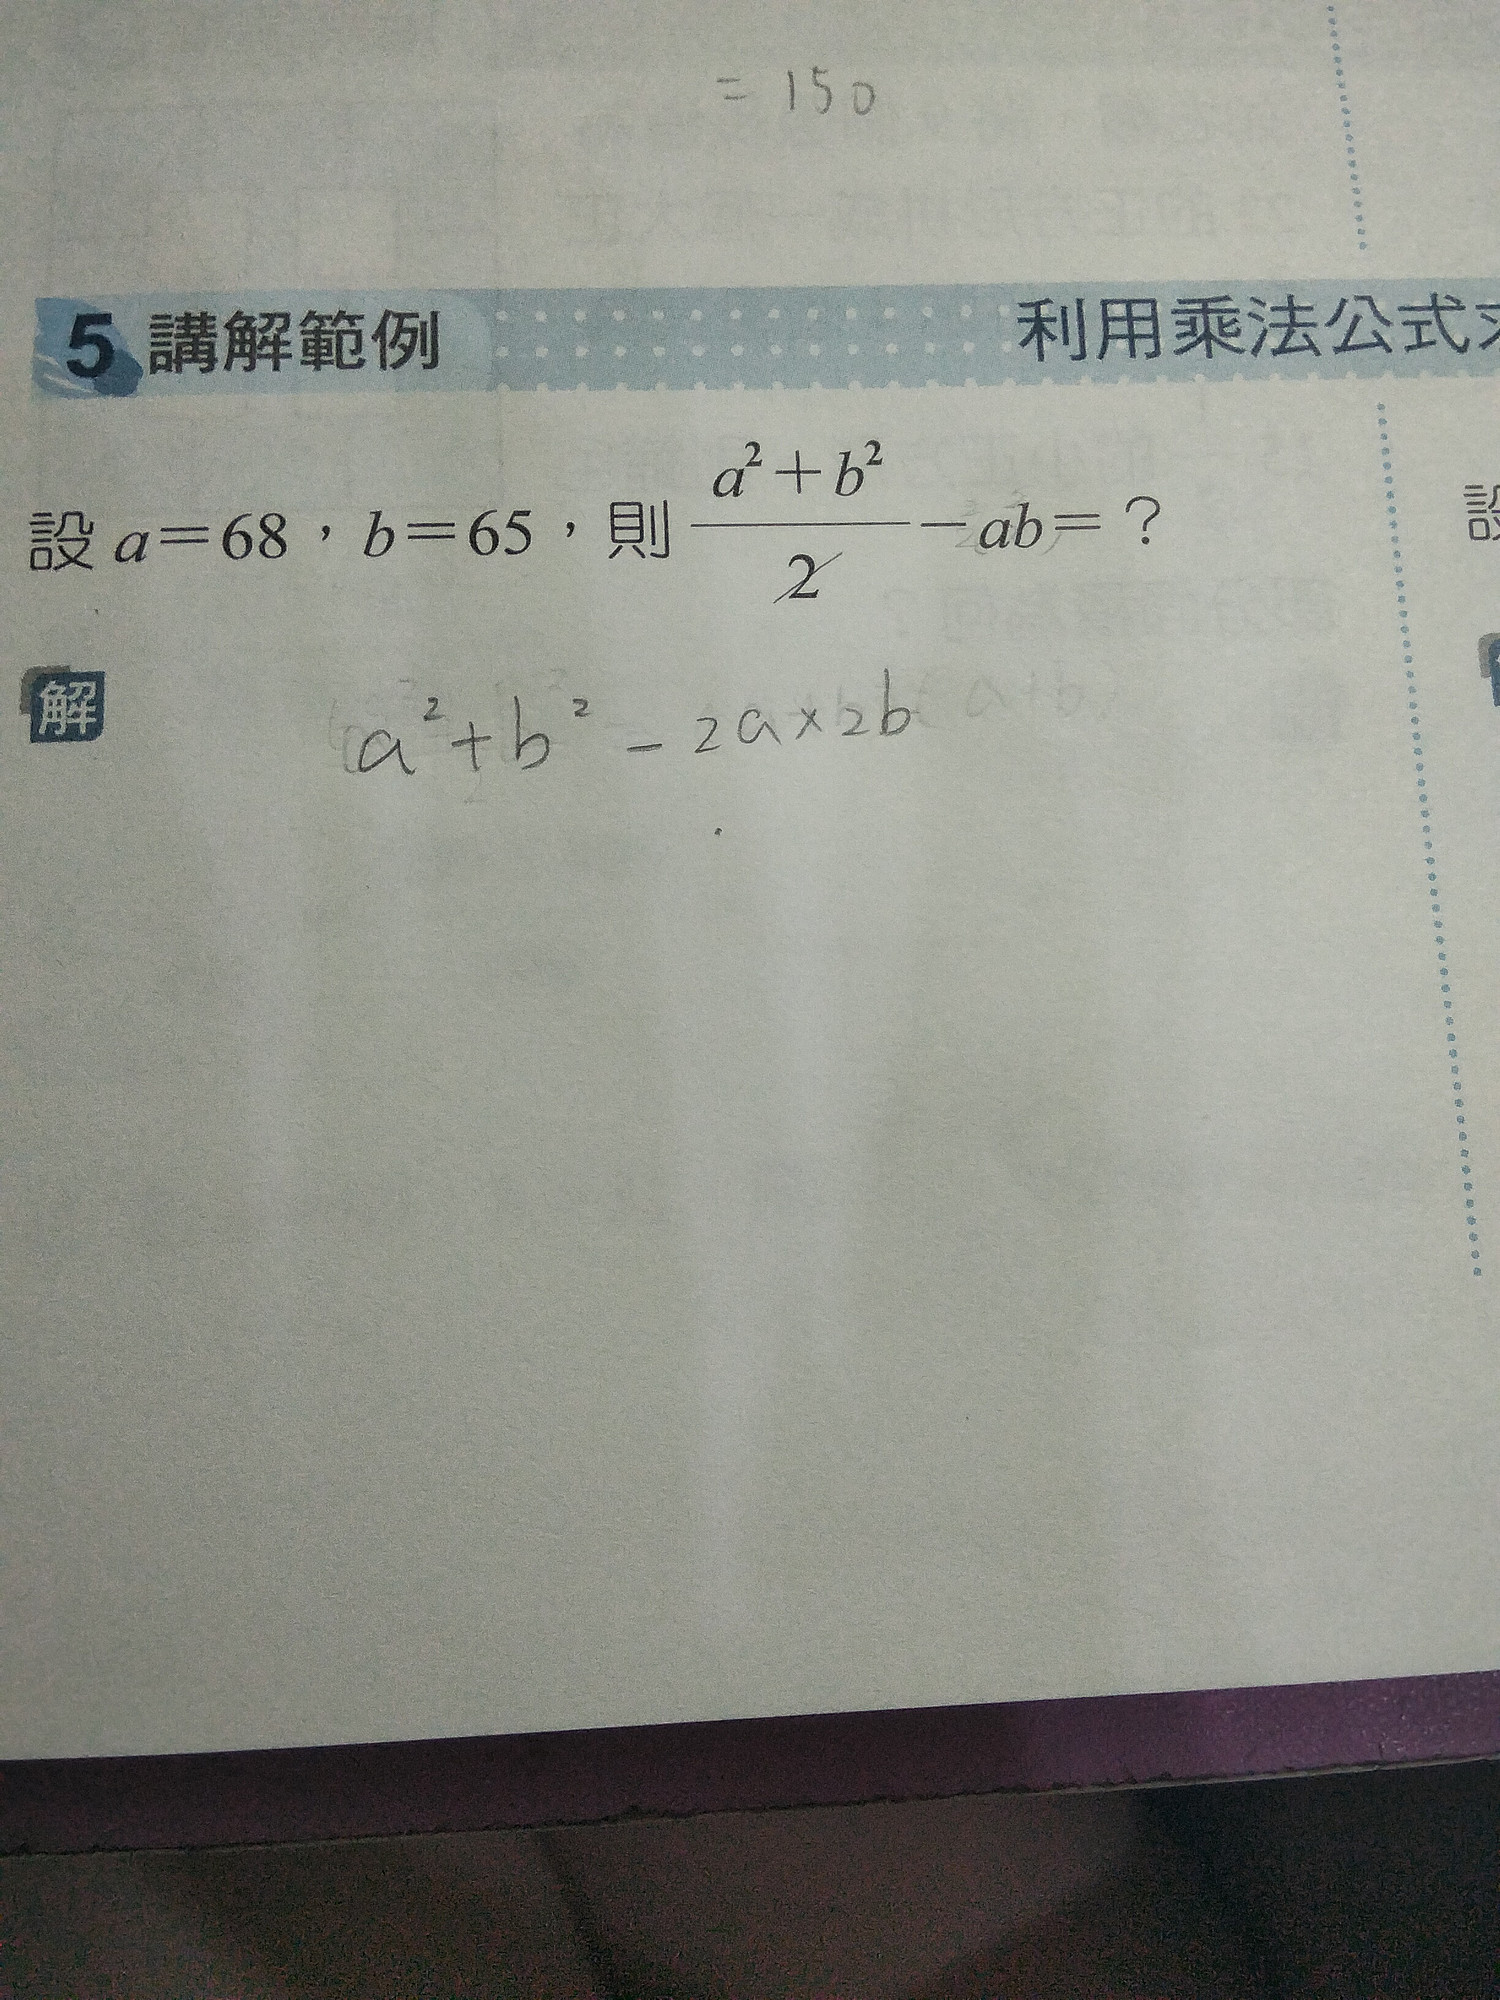 = 150
5 講解範例 利用乘法公式求
設 a=68，b=65，則 (a²+b²)/2 −ab=？
設
解
a²+b² − 2a×2b